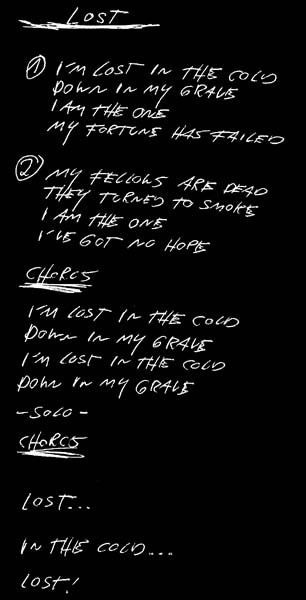 LOST
1 I'M LOST IN THE COLD
DOWN IN MY GRAVE
I AM THE ONE
MY FORTUNE HAS FAILED
2 MY FELLOWS ARE DEAD
THEY TURNED TO SMOKE
I AM THE ONE
I'VE GOT NO HOPE
CHORUS
I'M LOST IN THE COLD
DOWN IN MY GRAVE
I'M LOST IN THE COLD
DOWN IN MY GRAVE
- SOLO -
CHORUS
LOST...
IN THE COLD...
LOST!